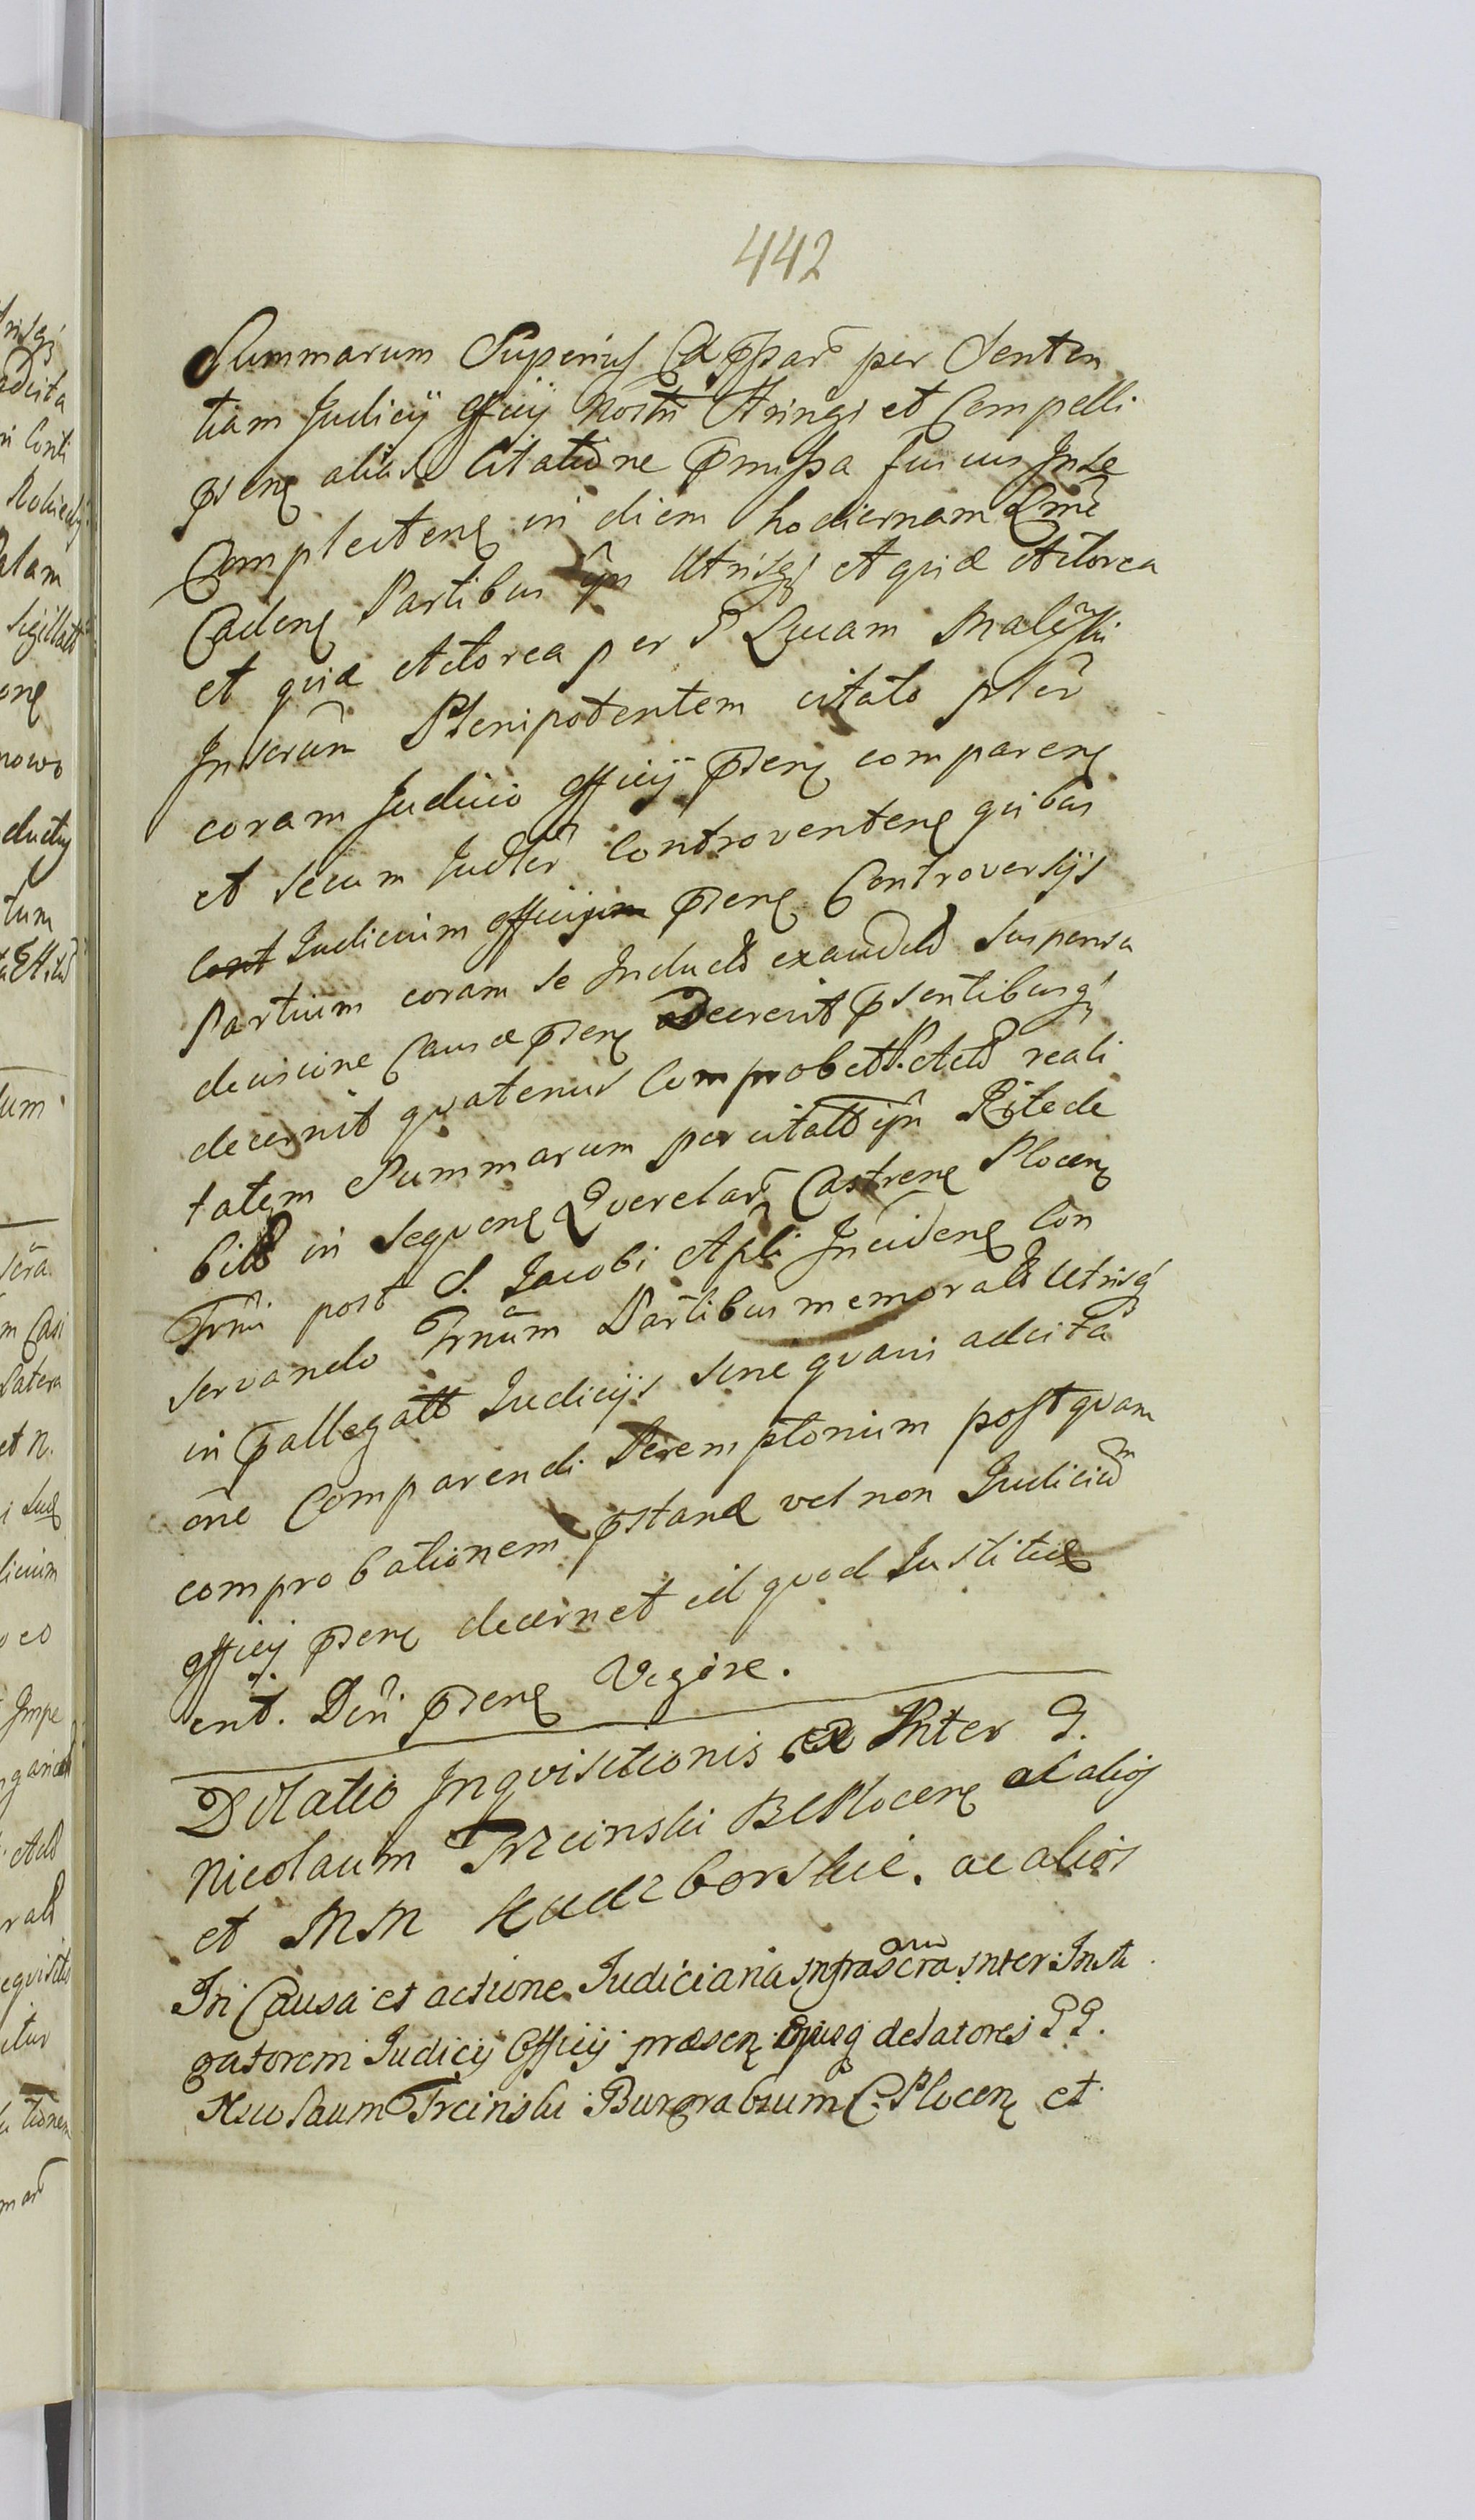 442
Summarum Superius Exp̄ssar̄ per Senten
tiam Judicij Officij Nostri Stringi et Compelli
p̄senȩ alias Citatione p̄missa fusius In se
Complectenȩ in diem hodiernam Lm̄e
Cadenȩ Partibus ip̄n Utrisq; et quia Actorea
et quia Actorea per G Lucam Maleski
Inscrām Plenipotentem citato pltr̄
coram Judicio officij p̄senȩ comparenȩ
et secum Judtr̄ Controventenȩ quibus
Cont Judicium officijum p̄senȩ Controversijs
Partium coram se Inductis exauditis suspensa
decisione Causæ p̄senȩ Decrevit p̄sentibusq;
decernit quatenus Comprobet P. Acto reali
tatem Summarum per citatos ip̄n Rite de
bitas in sequenȩ Querelar̄ Castrenȩ Plocenȩ
Trm̄i post S. Jacobi Apli Incidenȩ Con
servando Trnūm Partibus memoratis Utrisq;
in p̄allegatis Judicijs sine quavis adcita
one Comparendi Peremptorium postquam
comprobationem p̄standa vel non Judicium
officij p̄senȩ decernet id quod Justitiæ
erit. Drī p̄senȩ Vigore.
Dilatio Inquisitionis ex Inter G.
Nicolaum Trzcinski BCPlocenȩ ac alios
et MM Kudzborskie. ac alios
In Causa et actione Judiciaria Infrascra Inter Insta
gatorem Judicij Officij præsenȩ ejusq; delatores GG.
Nicolaum Trcinski Burgrabium C. Plocenȩ et